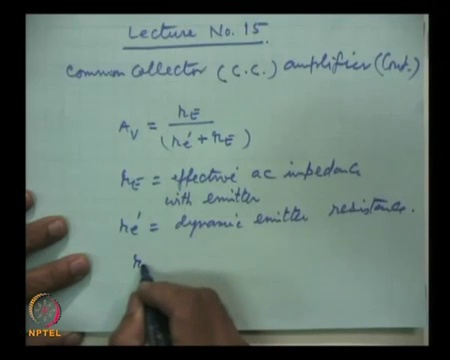 Lecture No. 15.
Common Collector (C.C.) amplifier (Cont.)
A_V = r_E / (r_e' + r_E)
r_E = effective ac impedance
with emitter
r_e' = dynamic emitter resistance.
r
NPTEL